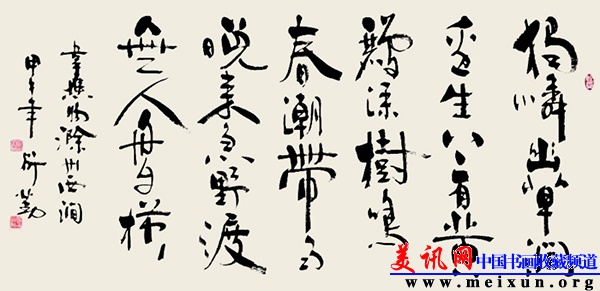 獨憐幽草澗
邊生上有黃
鸝深樹鳴
春潮帶雨
晚來急野渡
無人舟自橫
韋應物滁州西澗
甲午年
美讯网 中国书画收藏频道
www.meixun.org